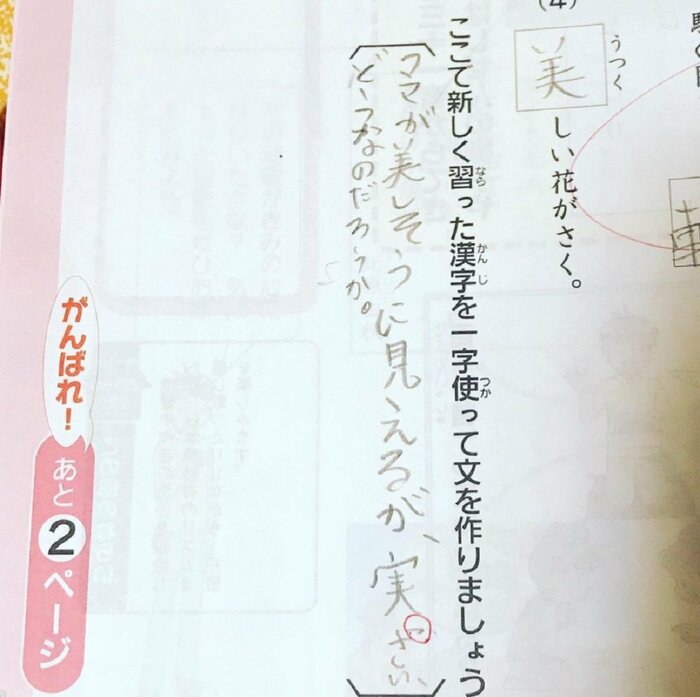 (4)
うつく
美しい花がさく。
なら かんじ つか
ここで新しく習った漢字を一字使って文を作りましょう
ママが美しそうに見えるが、実さい、
どうなのだろうか。
がんばれ!
あと2ページ